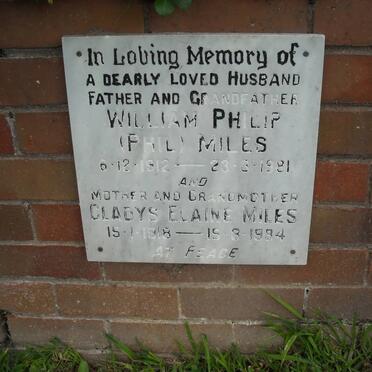 In Loving Memory of
A DEARLY LOVED HUSBAND
FATHER AND GRANDFATHER
WILLIAM PHILIP
(PHIL) MILES
6·12·1912 — 23·3·1981
AND
MOTHER AND GRANDMOTHER
GLADYS ELAINE MILES
15·1·1918 — 15·3·1994
AT PEACE